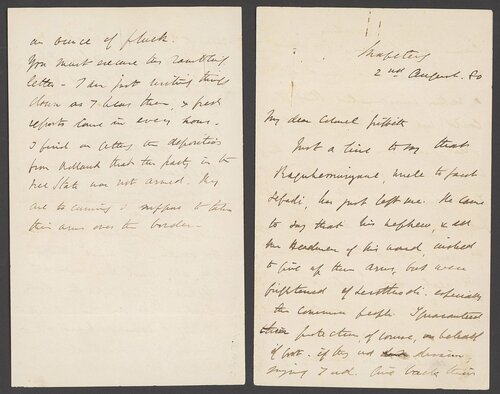 an ounce of pluck.
You must excuse this rambling
letter - I am just writing things
down as I hear them, & fresh
reports come in every hour.
I find on getting the deposition
from that the party in the
Free State was not armed. They
are to coming I suppose to take
their arms over the border -
Mafeteng
2nd August. 80
My dear Colonel Griffith
Just a line to say that
uncle to
has just left me. He came
to say that his nephew, & all
the Headmen of his ward, wished
to give up their arms, but were
frightened of Lerothodi. especially
the common people. I guaranteed
their protection, of course, on behalf
of Govt. if they did
saying I wd. give back their